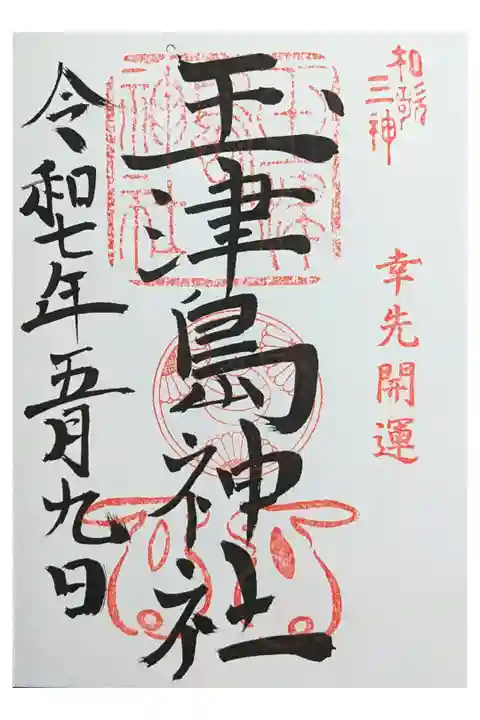 和歌
三神
幸先開運
玉津島神社
令和七年五月九日